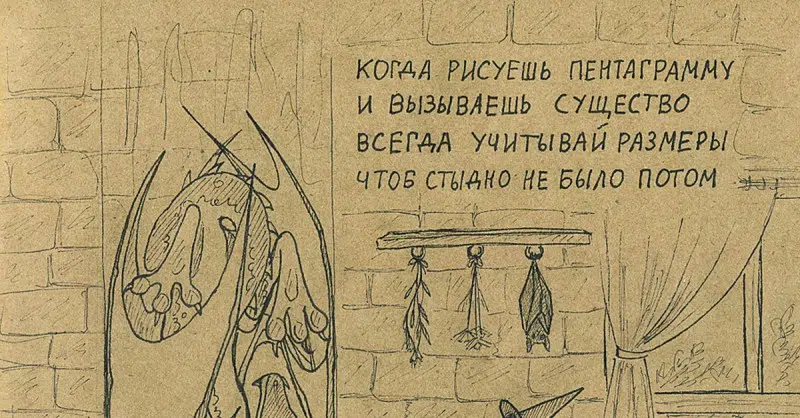 КОГДА РИСУЕШЬ ПЕНТАГРАММУ
И ВЫЗЫВАЕШЬ СУЩЕСТВО
ВСЕГДА УЧИТЫВАЙ РАЗМЕРЫ
ЧТОБ СТЫДНО НЕ БЫЛО ПОТОМ